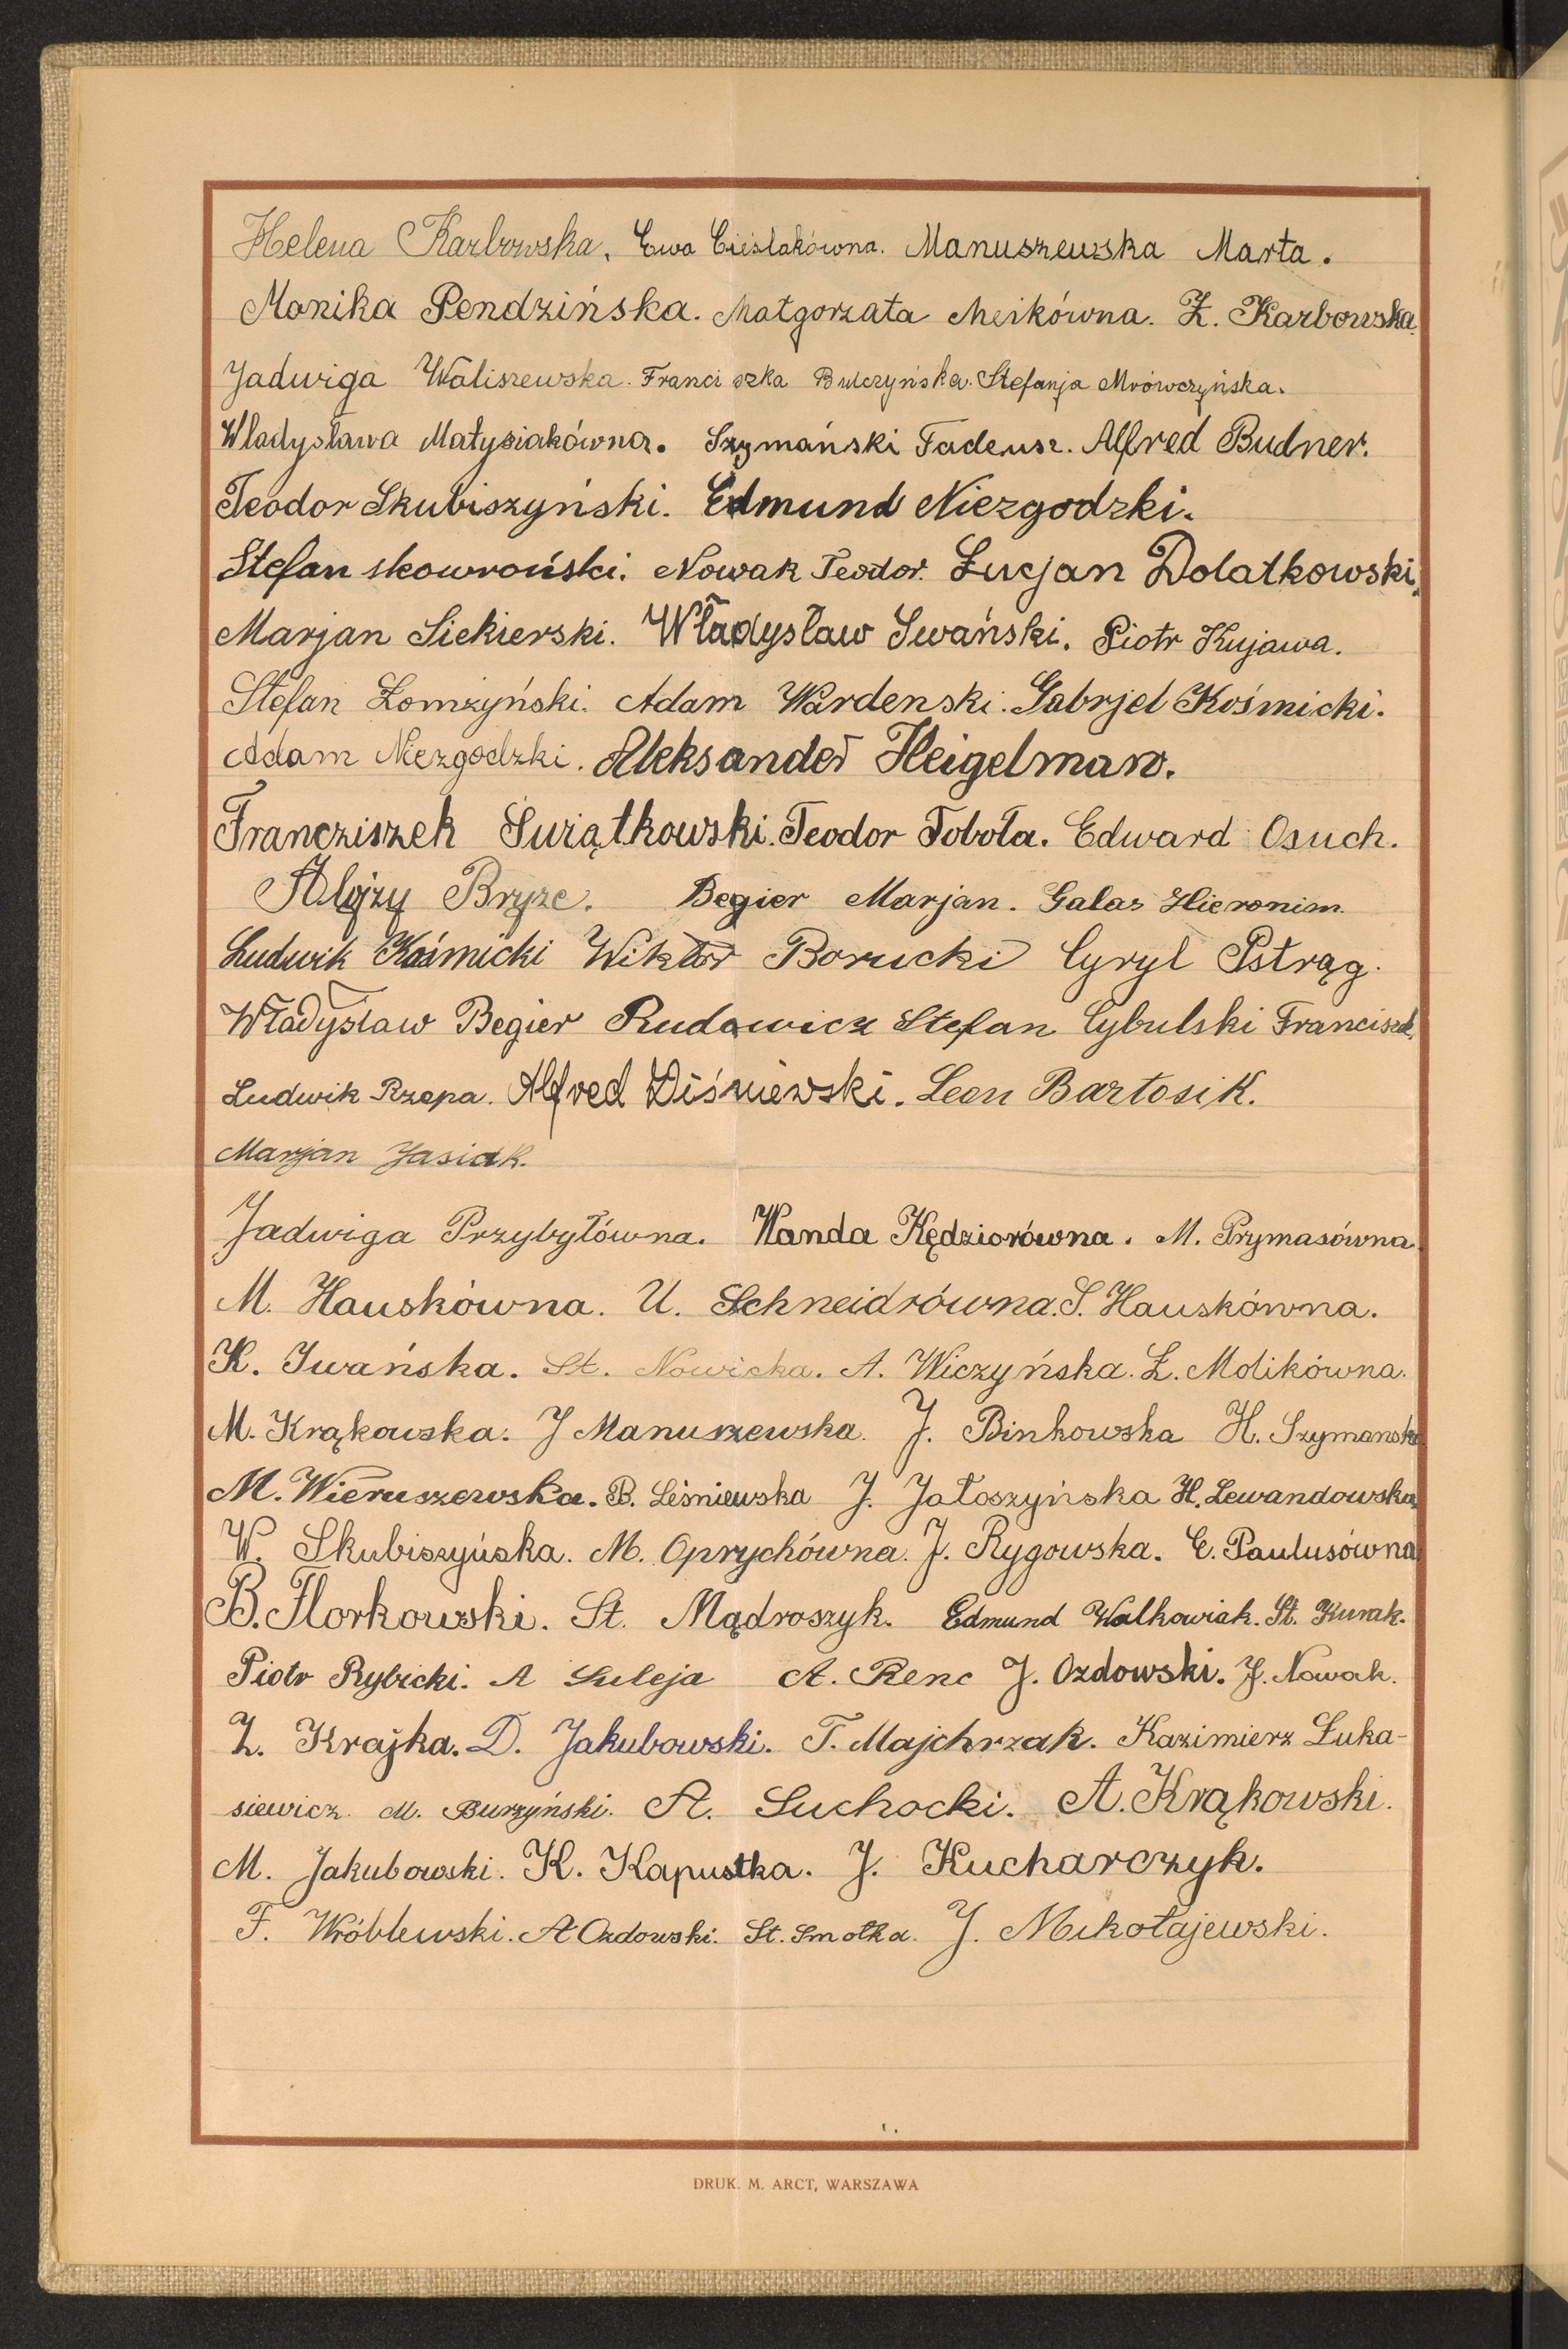 Helena Karbowska. Ewa Cieślakówna. Manuszewska Marta.
Monika Pendzińska. Małgorzata Meikówna. Z. Karbowska.
Jadwiga Waliszewska. Franciszka Bulczyńska. Stefanja Mrówczyńska.
Wladysława Matysiakówna. Szymański Tadeusz. Alfred Budner.
Teodor Skubiszyński. Edmund Niezgodzki.
Stefan skowroński. Nowak Teodor. Łucjan Dolatkowski.
Marjan Siekierski. Władysław Iwański. Piotr Kujawa.
Stefan Łomżyński. Adam Wardenski. Gabrjel Kośmicki.
Adam Niezgodzki. Aleksander Heigelman.
Francziszek Świątkowski. Teodor Toboła. Edward Osuch.
Alojzy Bryze. Begier Marjan. Galas Hieronim.
Ludwik Kośmicki Wiktor Borucki Cyryl Pstrąg.
Władysław Begier Rudowicz Stefan Cybulski Franciszek.
Ludwik Rzepa. Alfred Wiśniewski. Leon Bartosik.
Marjan Jasiak.
Jadwiga Przybyłówna. Wanda Kędziorówna. M. Prymasówna.
M. Hauskówna. U. Schneidrówna. S. Hauskówna.
K. Iwańska. St. Nowicka. A. Wiczyńska. L. Molikówna.
M. Krąkowska. J Manuszewska. J. Binkowska H. Szymanska
M. Wieruszewska. B. Leśniewska J. Jałoszyńska H. Lewandowska.
W. Skubiszyńska. M. Oprychówna. J. Rygowska. C. Paulusówna.
B. Florkowski. St. Mądroszyk. Edmund Walkowiak. St. Kurak.
Piotr Rybicki. A Suleja A. Renc J. Ozdowski. J. Nowak.
Z. Krajka. D. Jakubowski. T. Majchrzak. Kazimierz Łuka-
siewicz. M. Burzyński. A. Suchocki. A. Krąkowski.
M. Jakubowski. K. Kapustka. J. Kucharczyk.
F. Wróblewski. A Ozdowski. St. Smołka. J. Mikołajewski.
DRUK. M. ARCT, WARSZAWA